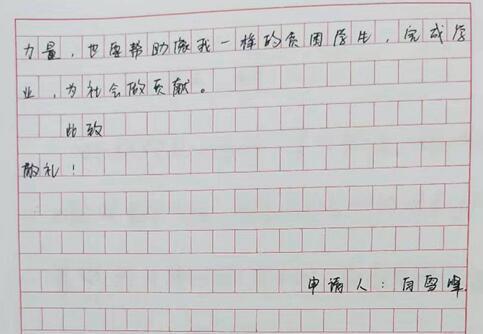 力量，也要帮助像我一样的贫困学生，完成学
业，为社会做贡献。
此致
敬礼！
申请人：闫雪峰